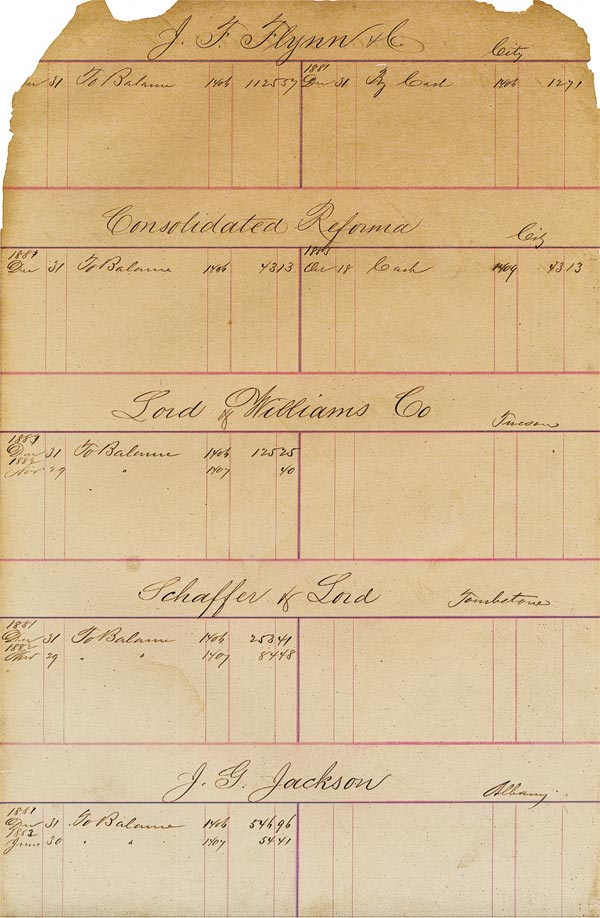 J. F. Flynn & C City
1881
31 To Balance 1406 112557 Dec 31 By Cash 1406 1271
Consolidated Reforma City
1881
Dec 31 To Balance 1406 4313 18 Cash 1409 4313
Lord & Williams Co Tucson
1881
Dec 31 To Balance 1406 12525
1882
Nov 29 " 1407 40
Schaffer & Lord Tombstone
1881
Dec 31 To Balance 1406 25341
1882
Nov 29 " " 1407 8448
J. G. Jackson Albany
1881
Dec 31 To Balance 1406 54696
1882
June 30 " " 1407 5441